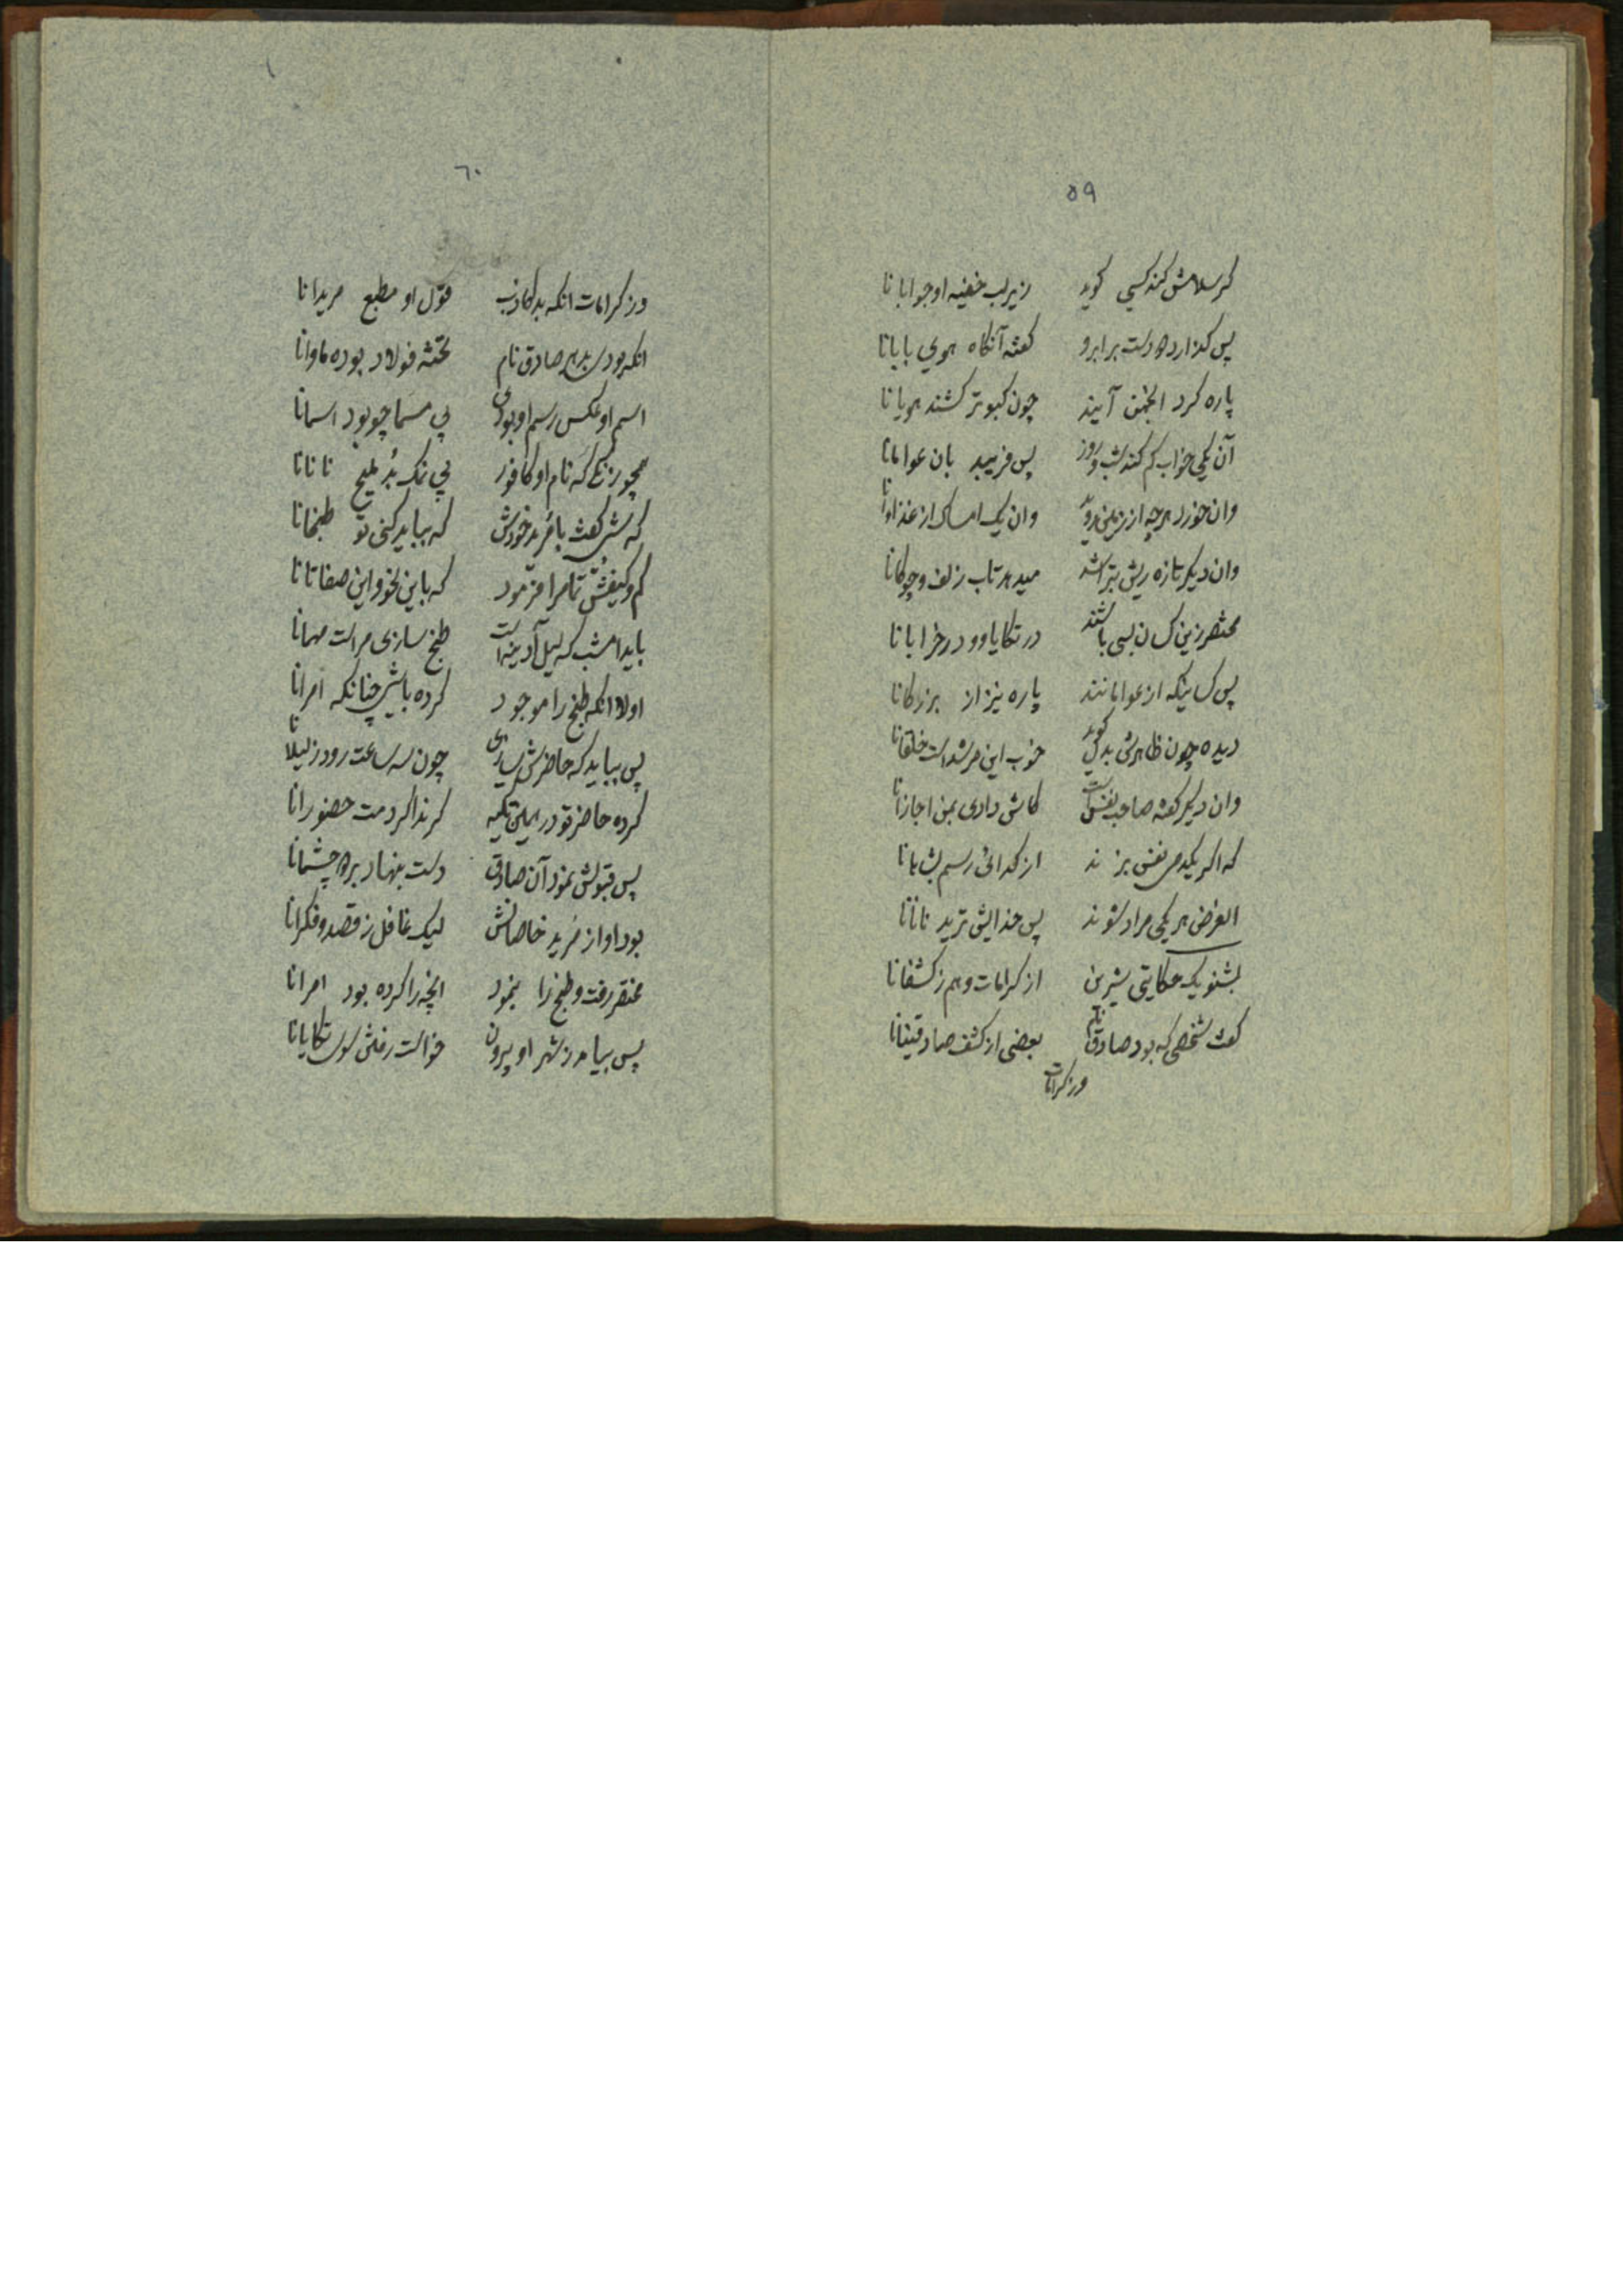 ٥٩
کر سلامش کند کسی کوید زیر لب خفیه او جوابا نا
پس کذارد دو دست بر ابرو کفته آنکاه هوی بابا نا
پاره کرد انجمن آیند چون کبوتر کشند هویا نا
آن یکی خواب کم کند شب و روز پس فریبد بان عواما نا
وان خورد هرچه از زمین روید وان یک امساک از غذاءا نا
وان دیکر تازه ریش بتراشد میدهد تاب زلف و چوکانا
مختصر زین کسان بسی باشند در تکایا و در خرابا نا
پس کسانیکه از عوامانند پاره نیز از بزرکانا
دیده چون ظاهرش بدل کوید خوب این مرشد است خلقانا
وان دیکر کفته صاحب نفس است کاش دادی بمن اجازانا
که اکر یکدمی نفس بزند از کدائی رسم بشاهانا
الغرض هر یکی مراد شوند پس خدایش ترید نانانا
بشنو یک حکایتی شیرین از کرامات و هم ز کشفانا
کفت شخصی که بود صادق نام بعضی از کشف صادقینانا
ورز کرامات
٦٠
ورز کرامات انکه بد کاذب قول او مطبع مریدانا
انکه بودی بدهر صادق نام تخته فولاد بوده ماوانا
اسم او عکس رسم او بودی بی مسما چو بود اسمانا
همچو زنکی که نام او کافور بی نمک بُد ملیح نانانا
که شبی کفت با مُرید خودش که بباید کنی تو طبخانا
کم و کیفش تمامرا فرمود که باین نحو و این صفاتانا
باید امشب که لیل آدینه است طبخ سازی مراست مهمانا
اولا انکه طبخ را موجود کرده باشی چنانکه امرانا
پس بباید که حاضرش سازی چون سه ساعت رود ز لیلانا
کرده حاضر تو در همین تکیه کر ندا کردمت حضورانا
پس قبولش نمود آن صادق دست بنهاد بر دو چشمانا
بود او از مُرید خاصانش لیک غافل ز قصد و فکرانا
مختصر رفت و طبخ را بنمود انچه را کرده بود امرانا
پس بیامد ز شهر او بیرون خواست رفتن بسوی تکایانا